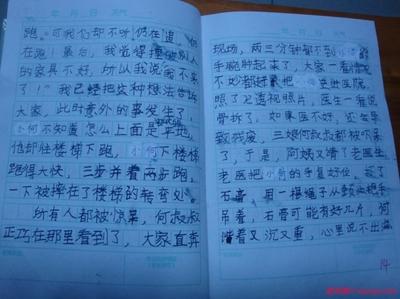 年 月 日 天气
跑。可我仍却不听仍在追,仍
在跑!最后,我觉得撞破别人
的家具不好,所以我说高不来
了!"我已经把这种想法告诉
大家,此时意外的事发生了,
小何不知道怎么上面是平地,
他却往楼梯下跑,小何下楼梯
跑得大快,三步并着两步跑,
一下被摔在了楼梯的转弯处。
所有人都被惊呆,何叔叔
正巧在那里看到了,大家直奔
现场,两三分钟都不到小
手腕肿起来了,大家一看情况
不妙都好把小 送进医院,
照了X透视照片,医生一看说
骨拆了,如果医不好,还会导
致残废,三娘何叔叔都被吓呆
了,于是,阿姨又请了老医生
老医把小何的手复好位,敷了
石膏,用一根绳子从脖处把手
吊着,石膏可能有好几斤,何
着又沉又重,心里说不出
14